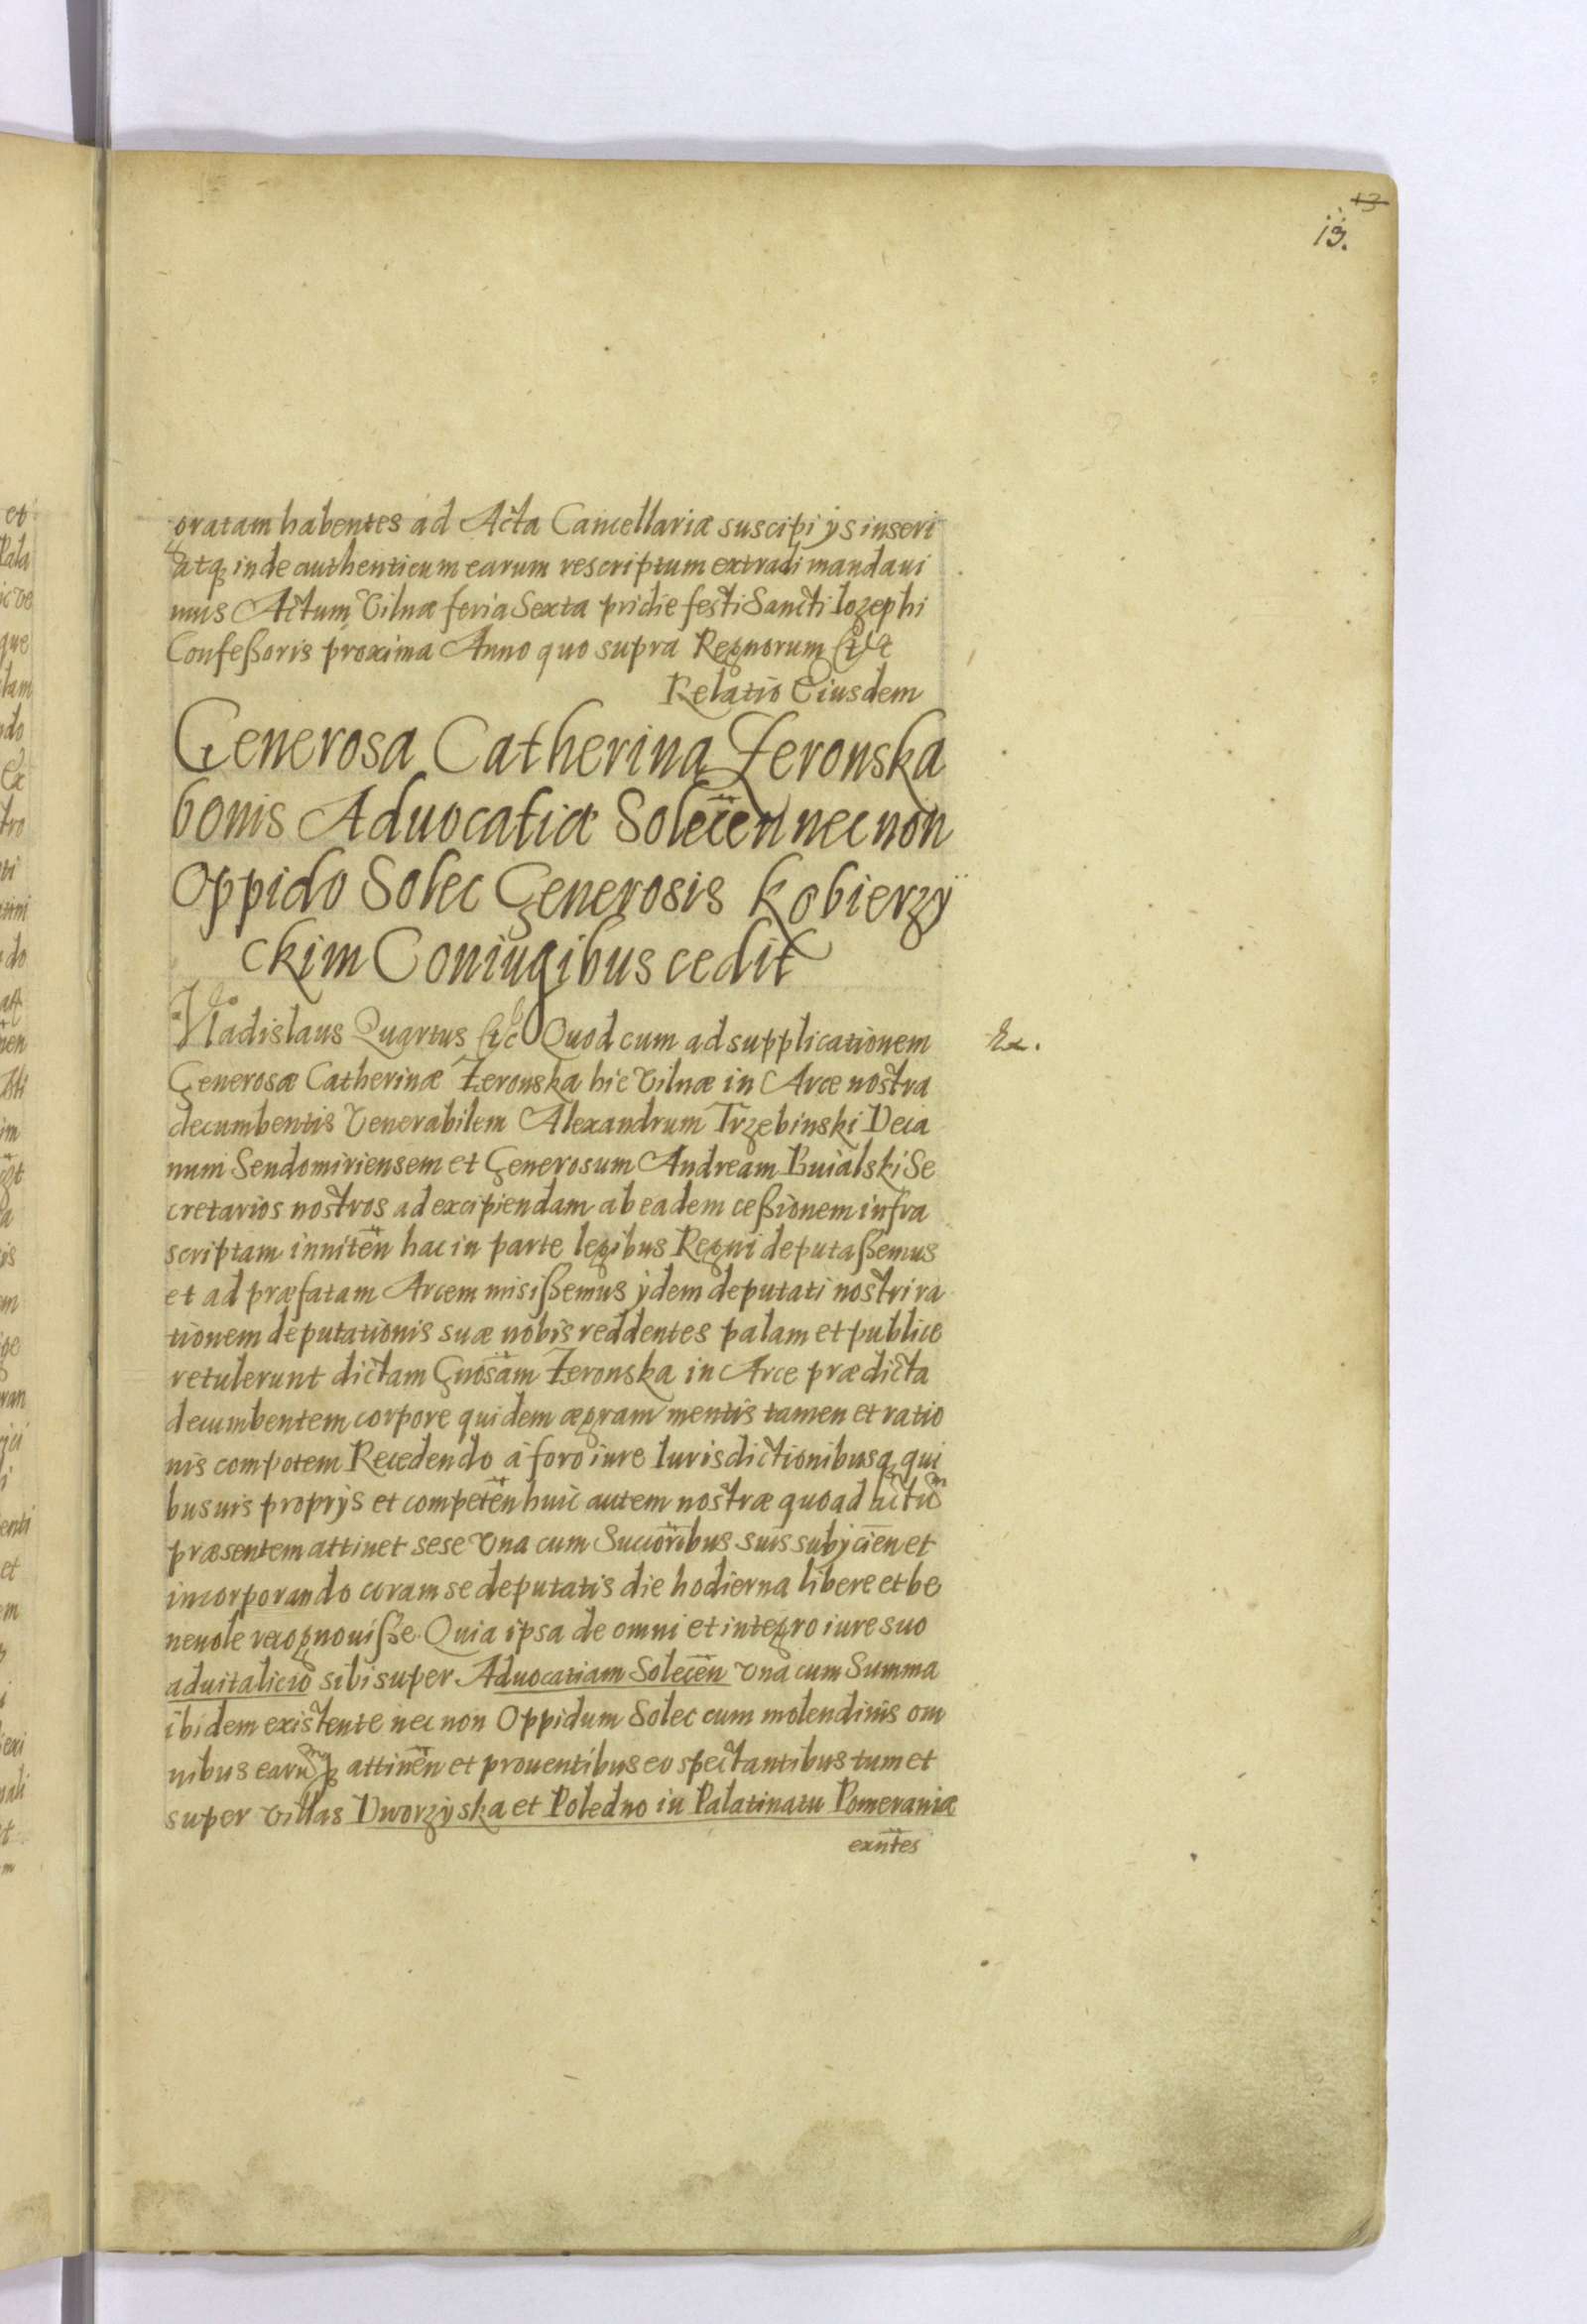 13
13.
oratam habentes ad Acta Cancellariæ suscipi ÿs inseri
atq inde authenticum earum rescriptum extradi mandaui
mus Actum Vilnæ feria Sexta pridie festi Sancti Iozephi
Confeßoris proxima Anno quo supra Regnorum
Relatio Eiusdem
Generosa Catherina Zeronska
bonis Aduocatiæ Solecen nec non
Oppido Solec Generosis Kobierzÿ
ckim Coniugibus cedit
Vladislaus Quartus &c Quod cum ad supplicationem
Ex.
Generosæ Catherinæ Zeronska hic Vilnæ in Arce nostra
decumbentis Venerabilem Alexandrum Trzebinski Deca
num Sendomiriensem et Generosum Andream Buialski Se
cretarios nostros ad excipiendam ab eadem ceßionem infra
scriptam inniten hac in parte legibus Regni deputaßemus
et ad præfatam Arcem misißemus ÿdem deputati nostri ra
tionem deputationis suæ nobis reddentes palam et publice
retulerunt dictam Gnosam Zeronska in Arce prædicta
decumbentem corpore quidem ægram mentis tamen et ratio
nis compotem Recedendo á foro iure Iurisdictionibusq qui
busuis proprÿs et competen huic autem nostræ quoad actum
præsentem attinet sese Vna cum Succoribus suis subÿcien et
incorporando coram se deputatis die hodierna libere et be
neuole recognouiße. Quia ipsa de omni et integro iure suo
aduitalicio sibi super Aduocatiam Solecen Vna cum Summa
ibidem existente nec non Oppidum Solec cum molendinis om
nibus earumq attinen et prouentibus eo spectantibus tum et
super Villas Dworzÿska et Poledno in Palatinatu Pomeraniæ
exntes